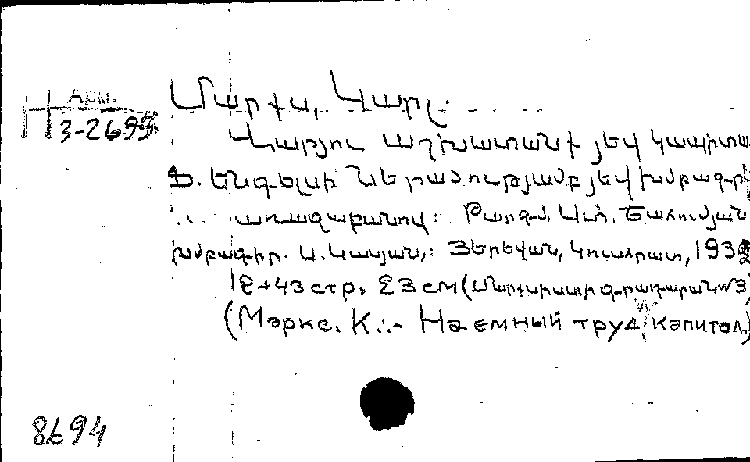 Арм.
3-2695
Մարքս, Կարլ.
Վարձու աշխատանք յեվ կապիտա
Ֆ. Ենգելսի ներածությամբ յեվ խմբագր
առաջաբանով: Թարգմ.
խմբագիր. Ա. Յերեվան, Կուսհրատ, 193
18+43 стр. 23 см (Մարքսիստի գրադարան № 3
(Маркс. К. :- Наемный труд и капитал)
8694